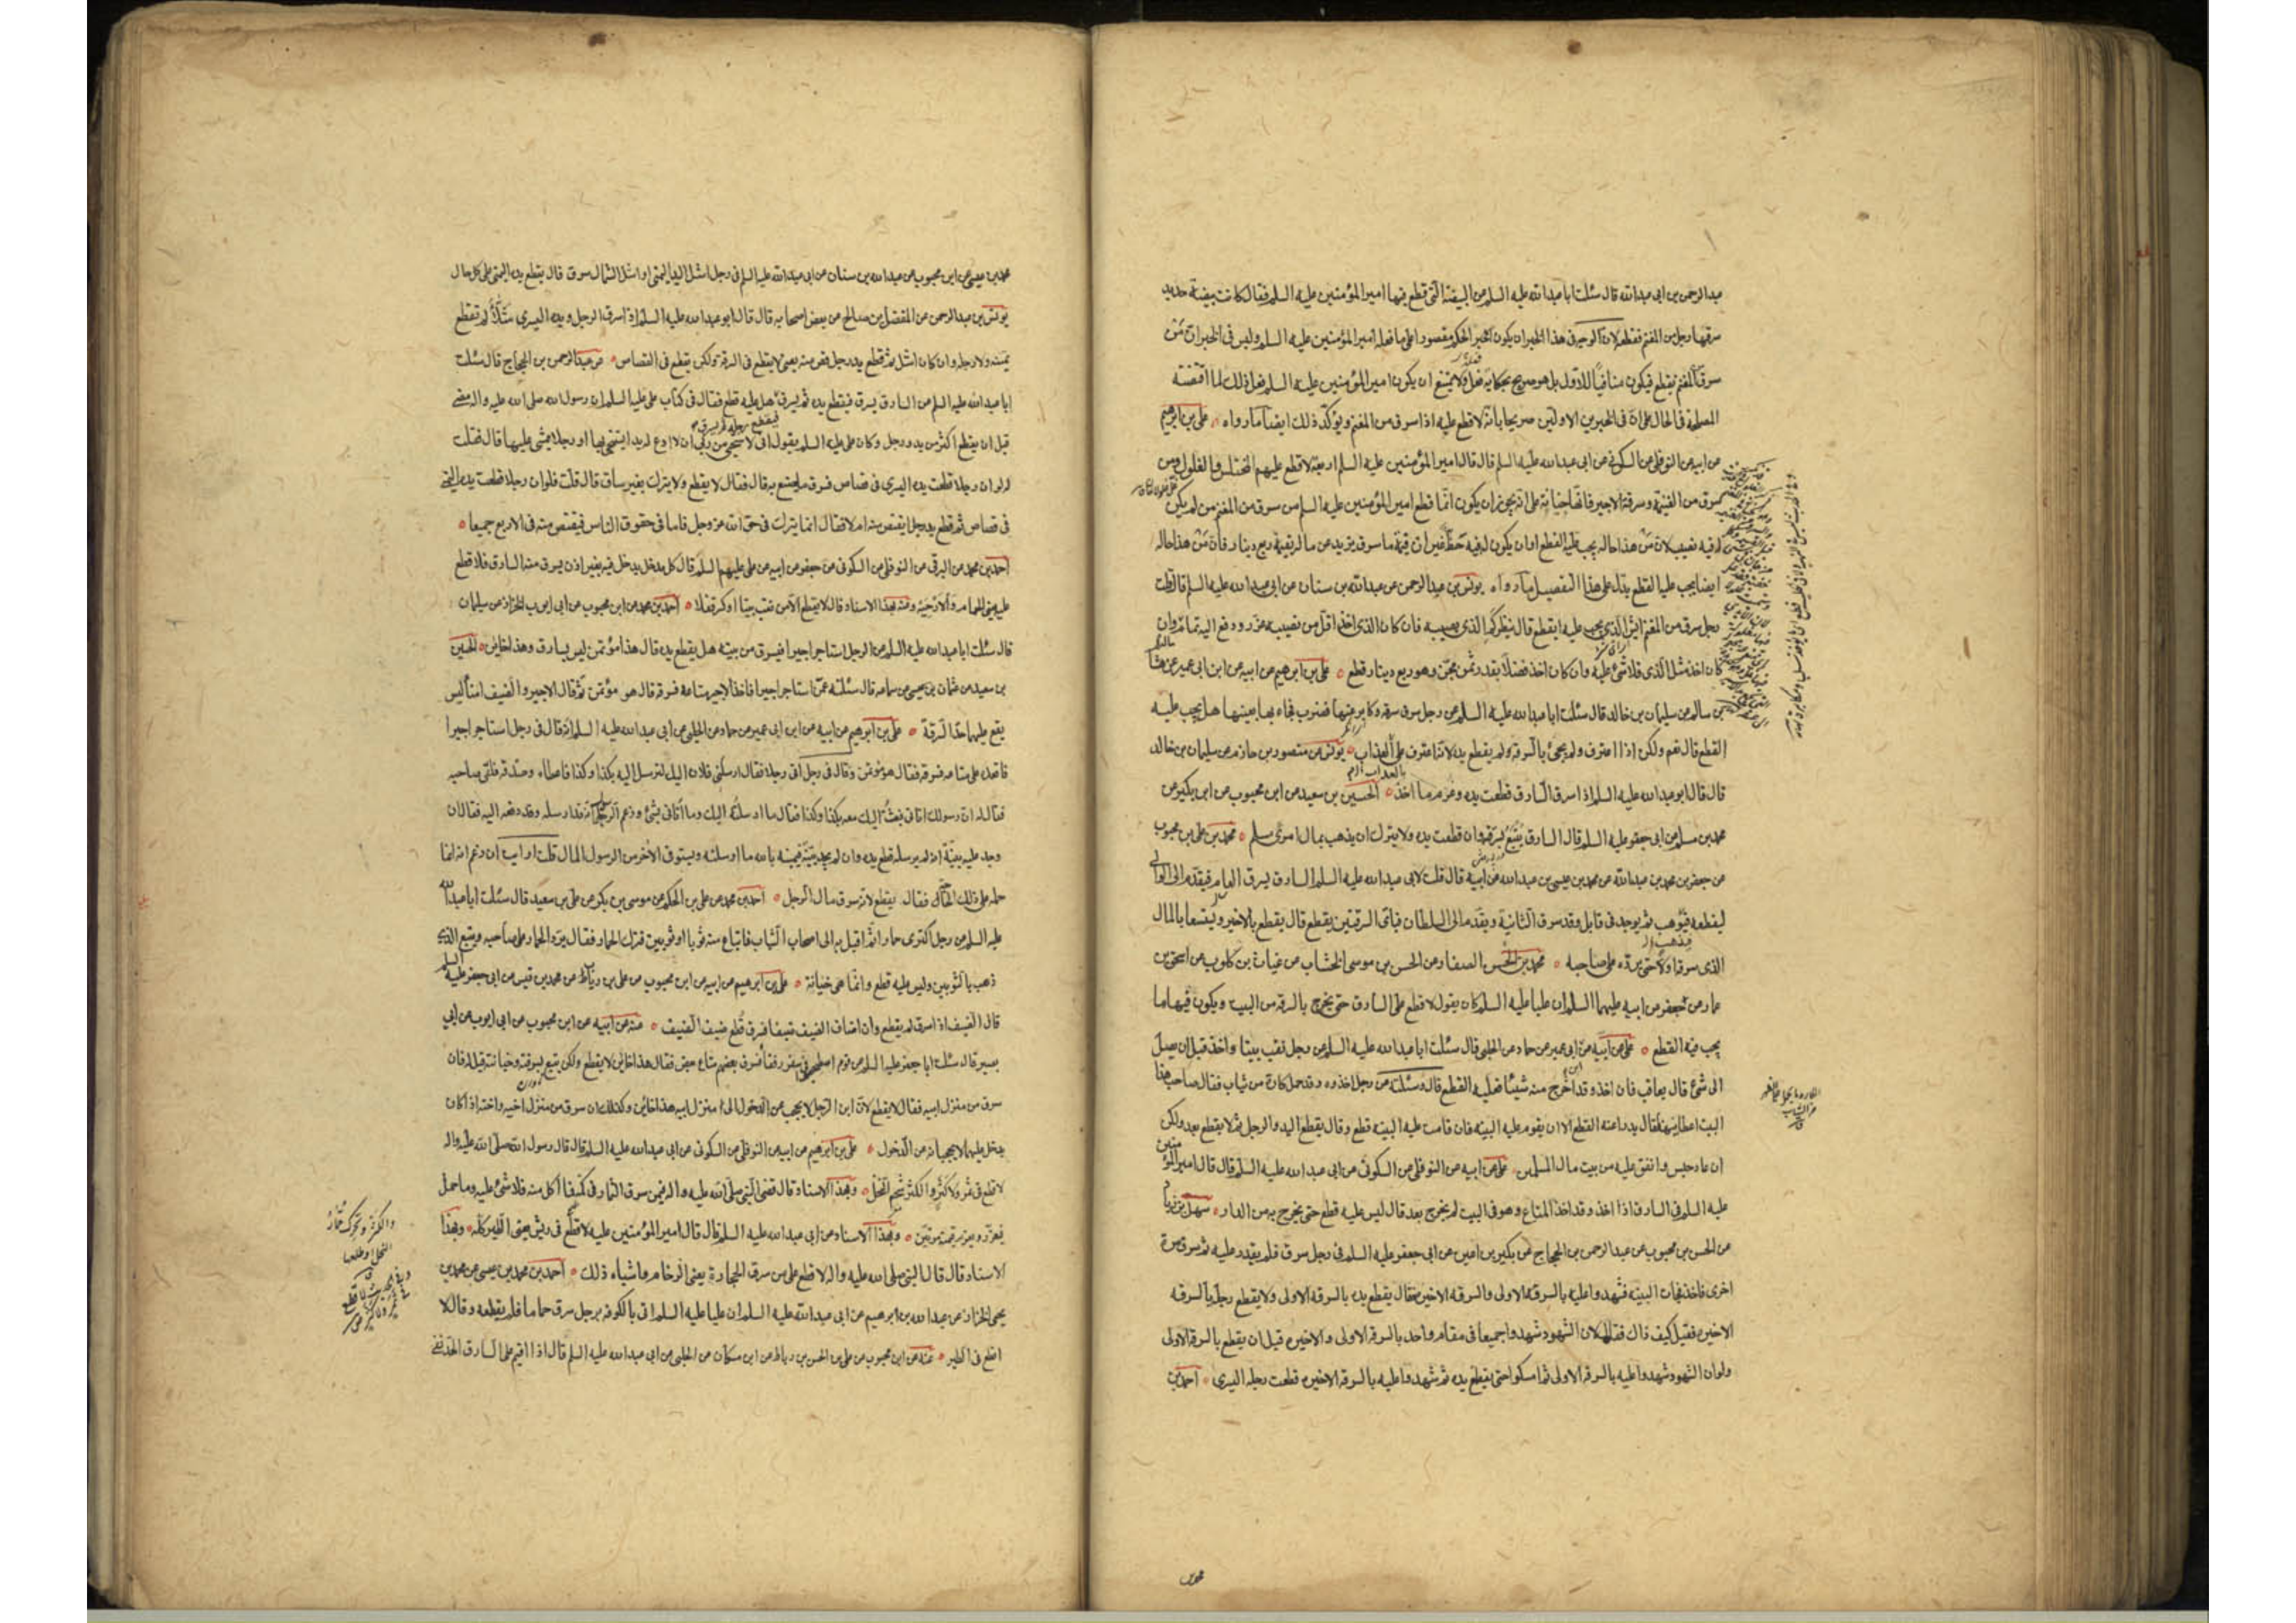 عبد الرحمن بن ابى عبد الله قال سئلت ابا عبد الله عليه السلم عن البيضة التى قطع فيها امير المؤمنين عليه السلم فقال كانت بيضة حديد
سرقها رجل من المغنم فقطعه لان الوجه فى هذا الخبر ان يكون الخبر الحكم مقصودا على ما فعله امير المؤمنين عليه السلم وليس فى الخبر ان من
سرق المغنم يقطع فيكون منافيا للاول بل هو صريح بحكاية فعل ولا يمتنع ان يكون امير المؤمنين عليه السلم فعل ذلك لما اقتضته
المصلحة فى الحال على ان فى الخبرين الاولين صريحا بانه لا قطع عليه اذا سرق من المغنم ويؤكد ذلك ايضا ما رواه على بن ابرهيم
عن ابيه عن النوفلى عن السكونى عن ابى عبد الله عليه السلم قال قال امير المؤمنين عليه السلم اربعة لا قطع عليهم المختلس والغلول ومن
سرق من الغنيمة وسرقة الاجير فانها خيانة على انه يجوز ان يكون انما قطع امير المؤمنين عليه السلم من سرق من المغنم من لم يكن
له فيه نصيب لان من هذا حاله يجب عليه القطع او ان يكون له فيه حظ غير ان قيمة ما سرق يزيد عن ماله بقيمة ربع دينار فان من هذا حاله
ايضا يجب عليه القطع يدل على هذا التفصيل ما رواه يونس بن عبد الرحمن عن عبد الله بن سنان عن ابى عبد الله عليه السلم قال قلت
رجل سرق من المغنم ايش الذى يجب عليه ايقطع قال ينظر كم الذى يصيبه فان كان الذى اخذ اقل من نصيبه عزر ودفع اليه تمام ماله وان
كان اخذ مثل الذى له فلا شئ عليه وان كان اخذ فضلا بقدر ثمن مجن وهو ربع دينار قطع على بن ابرهيم عن ابيه عن ابن ابى عمير عن هشام
بن سالم عن سليمان بن خالد قال سئلت ابا عبد الله عليه السلم عن رجل سرق سرقة وكابر عنها فضرب فجاء بها بعينها هل يجب عليه
القطع قال نعم ولكن اذا اعترف ولم يجئ بالسرقة ولم يقطع يده لانه اعترف على العذاب يونس عن منصور بن حازم عن سليمان بن خالد
قال قال ابو عبد الله عليه السلم اذا سرق السارق قطعت يده وغرم ما اخذ الحسين بن سعيد عن ابن محبوب عن ابن بكير عن
محمد بن مسلم عن ابى جعفر عليه السلم قال السارق يتبع بسرقته وان قطعت يده ولا يترك ان يذهب بمال امرئ مسلم محمد بن على بن محبوب
عن جعفر بن محمد بن عبد الله عن محمد بن عيسى بن عبد الله عن ابيه قال قلت لابى عبد الله عليه السلم السارق يسرق العام فيقدم الى الوالى
ليقطعه فيوهب ثم يوجد فى قابل وقد سرق الثانية ويقدم الى السلطان فباى السرقتين يقطع قال يقطع بالاخير ويستسعى بالمال
الذى سرقه اولا حتى يرده على صاحبه محمد بن الحسن الصفار عن الحسن بن موسى الخشاب عن غياث بن كلوب عن اسحق بن
عمار عن جعفر عن ابيه عليهما السلم ان عليا عليه السلم كان يقول لا قطع على السارق حتى يخرج بالسرقة من البيت ويكون فيها ما
يجب فيه القطع على عن ابيه عن ابن ابى عمير عن حماد عن الحلبى قال سئلت ابا عبد الله عليه السلم عن رجل نقب بيتا واخذ قبل ان يصل
الى شئ قال يعاقب فان اخذ وقد اخرج منه شيئا فعليه القطع قال وسئلت عن رجل اخذوه وقد حمل كارة من ثياب فقال صاحب
البيت اعطانيها فقال يدرا عنه القطع الا ان يقوم عليه البينة فان قامت عليه البينه قطع وقال يقطع اليد والرجل ثم لا يقطع بعد ولكن
ان عاد حبس وانفق عليه من بيت مال المسلمين على عن ابيه عن النوفلى عن السكونى عن ابى عبد الله عليه السلم قال قال امير المؤمنين
عليه السلم فى السارق اذا اخذ وقد اخذ المتاع وهو فى البيت لم يخرج بعد قال ليس عليه قطع حتى يخرج به من الدار سهل بن زياد
عن الحسن بن محبوب عن عبد الرحمن بن الحجاج عن بكير بن اعين عن ابى جعفر عليه السلم فى رجل سرق فلم يقدر عليه ثم سرق مرة
اخرى فاخذ فجات البينه فشهدوا عليه بالسرقه الاولى والسرقه الاخيره فقال يقطع يده بالسرقه الاولى ولا يقطع رجله بالسرقه
الاخيره فقيل كيف ذاك فقال لان الشهود شهدوا جميعا فى مقام واحد بالسرقه الاولى والاخيره قبل ان يقطع بالسرقه الاولى
ولو ان الشهود شهدوا عليه بالسرقه الاولى ثم امسكوا حتى يقطع يده ثم شهدوا عليه بالسرقه الاخيره قطعت رجله اليسرى احمد بن
محمد بن عيسى عن ابن محبوب عن عبد الله بن سنان عن ابى عبد الله عليه السلم فى رجل اشل اليد اليمنى او اشل الشمال سرق قال يقطع يده اليمنى على كل حال
يونس بن عبد الرحمن عن المفضل بن صالح عن بعض اصحابه قال قال ابو عبد الله عليه السلم اذا سرق الرجل ويده اليسرى شلاء لم تقطع
يمينه ولا رجله وان كان اشل ثم قطع يد رجل قص منه يعنى لا يقطع فى السرقة ولكن يقطع فى القصاص عن عبد الرحمن بن الحجاج قال سئلت
ابا عبد الله عليه السلم عن السارق يسرق فيقطع يده ثم يسرق فيقطع رجله ثم يسرق هل عليه قطع فقال فى كتاب على عليه السلم ان رسول الله صلى الله عليه واله مضى
قبل ان يقطع اكثر من يد ورجل وكان على عليه السلم يقول انى لاستحيى من ربى ان لا ادع له يدا يستنجى بها او رجلا يمشى عليها قال فقلت
له لو ان رجلا قطعت يده اليسرى فى قصاص فسرق ما يصنع به قال فقال لا يقطع ولا يترك بغير ساق قال قلت فلو ان رجلا قطعت يده اليمنى
فى قصاص ثم قطع يد رجل ايقتص منه ام لا فقال انما يترك فى حق الله عز وجل فاما فى حقوق الناس فيقتص منه فى الاربع جميعا
احمد بن محمد عن البرقى عن النوفلى عن السكونى عن جعفر عن ابيه عن على عليهم السلم قال كل مدخل يدخل فيه بغير اذن يسرق منه السارق فلا قطع
عليه يعنى الحمام والارحية وعنه بهذا الاسناد قال لا يقطع الا من نقب بيتا او كسر قفلا احمد بن محمد عن ابن محبوب عن ابى ايوب الخزاز عن سليمان
قال سئلت ابا عبد الله عليه السلم عن الرجل استاجر اجيرا فيسرق من بيته هل يقطع يده قال هذا مؤتمن ليس بسارق وهذا خاين الحسين
بن سعيد عن عثمان بن عيسى عن سماعه قال سئلته عمن استاجر اجيرا فاخذ الاجير متاعه فسرقه قال هو مؤتمن ثم قال الاجير والضيف امنا ليس
يقع عليهما حد السرقة على بن ابرهيم عن ابيه عن ابن ابى عمير عن حماد عن الحلبى عن ابى عبد الله عليه السلم انه قال فى رجل استاجر اجيرا
فاقعده على متاعه فسرقه فقال هو مؤتمن وقال فى رجل اتى رجلا فقال ارسلنى فلان اليك لترسل اليه بكذا وكذا فاعطاه وصدقه فلقى صاحبه
فقال له ان رسولك اتانى فبعثت اليك معه بكذا وكذا فقال ما ارسلته اليك وما اتانى بشئ وزعم الرسول انه قد ارسله وقد دفعه اليه فقال ان
وجد عليه بينة انه لم يرسله قطع يده وان لم يجد بينة فيمينه بالله ما ارسلته ويستوفى الاخر من الرسول المال قلت ارايت ان زعم انه انما
حمله على ذلك الحاجة فقال يقطع لانه سرق مال الرجل احمد بن محمد عن على بن الحكم عن موسى بن بكر عن على بن سعيد قال سئلت ابا عبد الله
عليه السلم عن رجل اكترى حمارا ثم اقبل به الى اصحاب الثياب فابتاع منه ثوبا او ثوبين فترك الحمار فقال يرد الحمار على صاحبه ويتبع الذى
ذهب بالثوبين وليس عليه قطع وانما هى خيانة على بن ابرهيم عن ابيه عن ابن محبوب عن على بن رئاب عن محمد بن قيس عن ابى جعفر عليه السلم
قال الضيف اذا سرق لم يقطع وان اضاف الضيف ضيفا فسرق قطع ضيف الضيف عنه عن ابيه عن ابن محبوب عن ابى ايوب عن ابى
بصير قال سئلت ابا جعفر عليه السلم عن قوم اصطحبوا فى سفر رفقا فسرق بعضهم متاع بعض فقال هذا خاين لا يقطع ولكن يتبع بسرقته وخيانته قيل له فان
سرق من منزل ابيه فقال لا يقطع لان ابن الرجل لا يحجب عن الدخول الى منزل ابيه هذا خاين وكذلك ان سرق من منزل اخيه واخته اذا كان
يدخل عليهما لا يحجبانه عن الدخول على بن ابرهيم عن ابيه عن النوفلى عن السكونى عن ابى عبد الله عليه السلم قال قال رسول الله صلى الله عليه واله
لا قطع فى ثمر ولا كثر والكثر شحم النخل وبهذا الاسناد قال قضى النبى صلى الله عليه واله فيمن سرق الثمار فى كمه فما اكل منه فلا شئ عليه وما حمل
فيعزر ويغرم قيمته مرتين وبهذا الاسناد عن ابى عبد الله عليه السلم قال قال امير المؤمنين عليه لا قطع فى ريش يعنى الطير كله وبهذا
الاسناد قال قال النبى صلى الله عليه واله لا قطع على من سرق الحجارة يعنى الرخام واشباه ذلك احمد بن محمد بن عيسى عن محمد بن
يحيى الخزاز عن عبد الله بن ابرهيم عن ابى عبد الله عليه السلم ان عليا عليه السلم اتى بالكوفه برجل سرق حماما فلم يقطعه وقال لا
اقطع فى الطير عنه عن ابن محبوب عن على بن الحسن بن رباط عن ابن مسكان عن الحلبى عن ابى عبد الله عليه السلم قال اذا اقيم على السارق الحد نفى